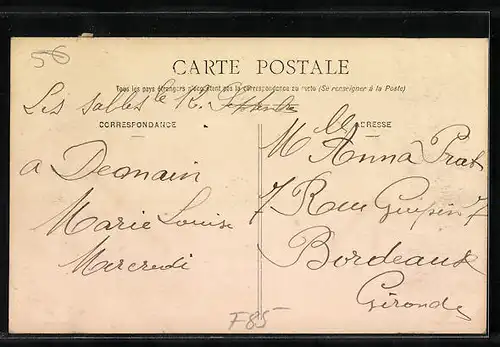 56
CARTE POSTALE
Tous les pays étrangers n'acceptent pas la correspondance au recto (Se renseigner à la Poste)
Les Salles le 12
CORRESPONDANCE
ADRESSE
a Demain
Marie Louise
Mercredi
Mlle Anna Prat
7 Rue 7
Bordeaux
Gironde
F85